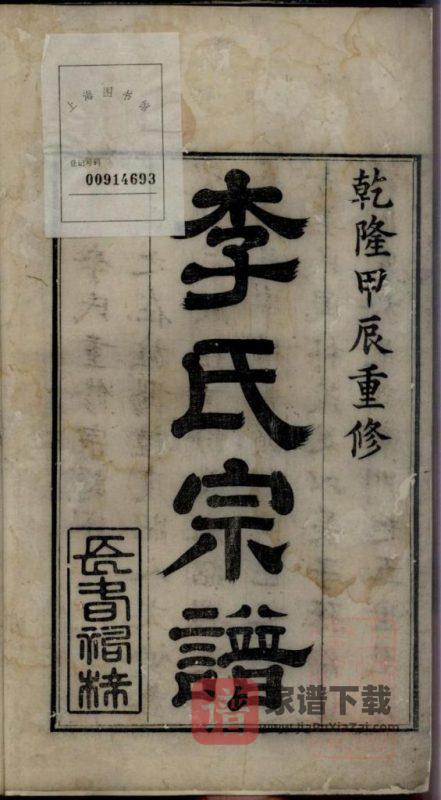 上海图书馆
登记号码
00914693
乾隆甲辰重修
李氏宗譜
家谱下载
www.JiaPuXiaZai.com